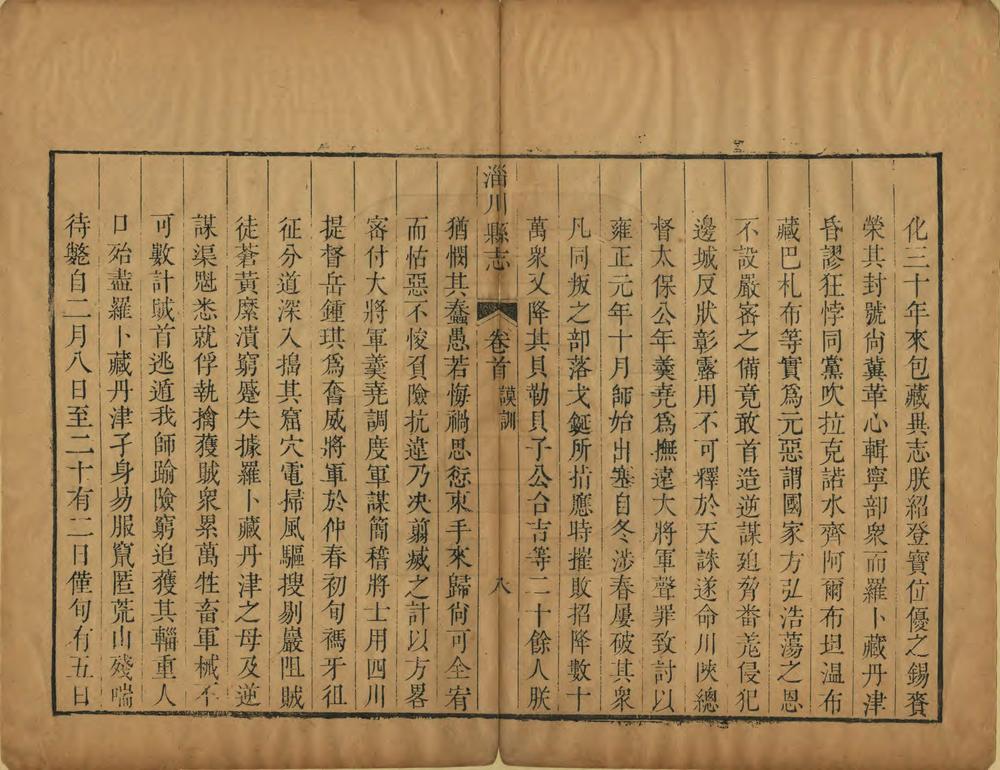 化三十年來包藏異志朕紹登寶位優之錫賚
榮其封號尙冀革心輯寧部衆而羅卜藏丹津
昏謬狂悖同黨吹拉克諾木齊阿爾布坦温布
藏巴札布等實爲元惡謂國家方弘浩蕩之恩
不設嚴密之備竟敢首造逆謀迫脅番羌侵犯
邊城反狀彰露用不可釋於天誅遂命川陝總
督太保公年羹堯爲撫遠大將軍聲罪致討以
雍正元年十月師始出塞自冬涉春屢破其衆
凡同叛之部落戈鋋所指應時摧敗招降數十
萬衆又降其貝勒貝子公台吉等二十餘人朕
淄川縣志 卷首 謨訓 八
猶憫其蠢愚若悔禍思愆束手來歸尙可全宥
而怙惡不悛負險抗違乃决翦滅之計以方畧
密付大將軍羹堯調度軍謀簡稽將士用四川
提督岳鍾琪爲奮威將軍於仲春初旬禡牙徂
征分道深入搗其窟穴電掃風驅搜剔巖阻賊
徒蒼黃糜潰窮蹙失據羅卜藏丹津之母及逆
謀渠魁悉就俘執擒獲賊衆累萬牲畜軍械不
可數計賊首逃遁我師踰險窮追獲其輜重人
口殆盡羅卜藏丹津孑身易服竄匿荒山殘喘
待斃自二月八日至二十有二日僅旬有五日